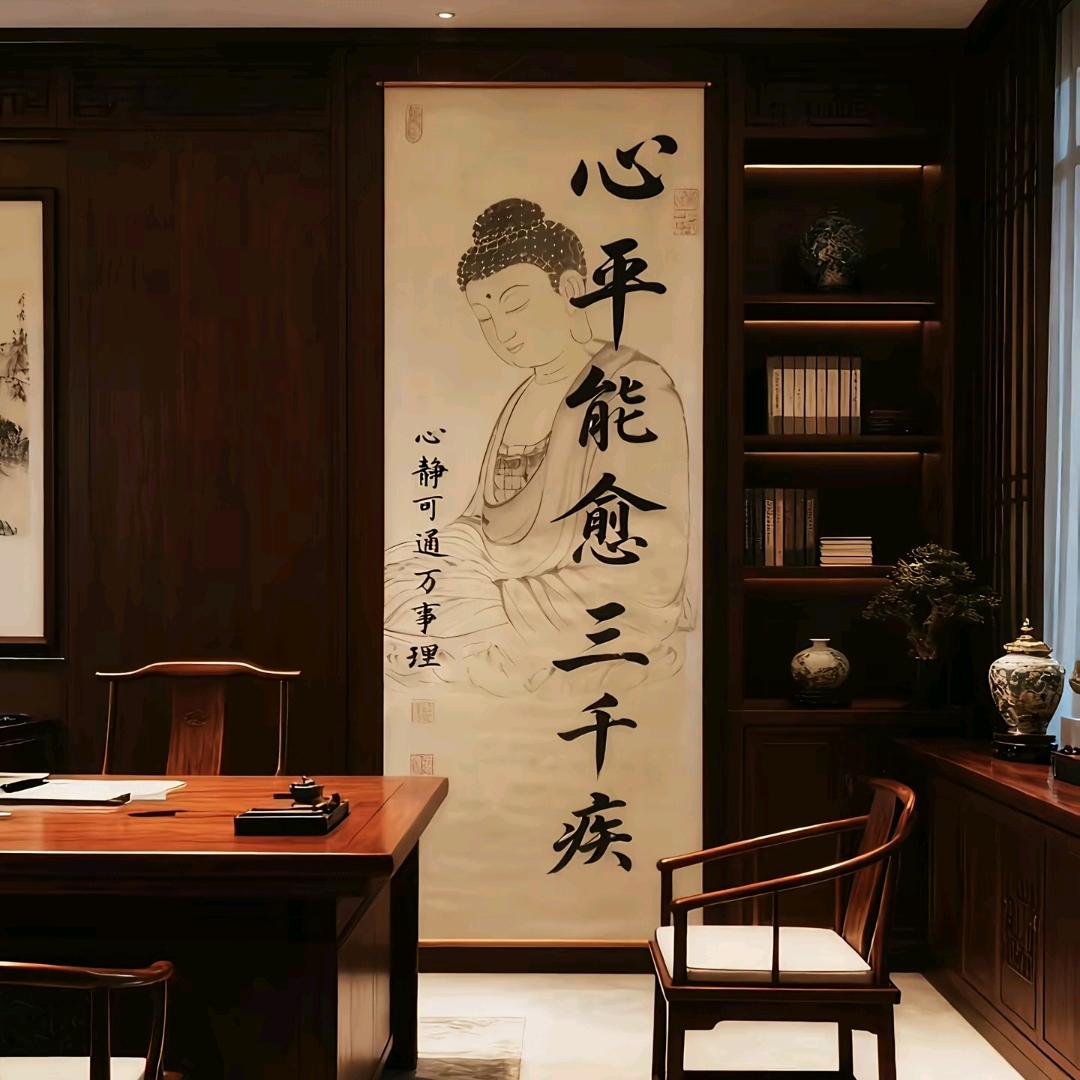 心平能愈三千疾
心静可通万事理